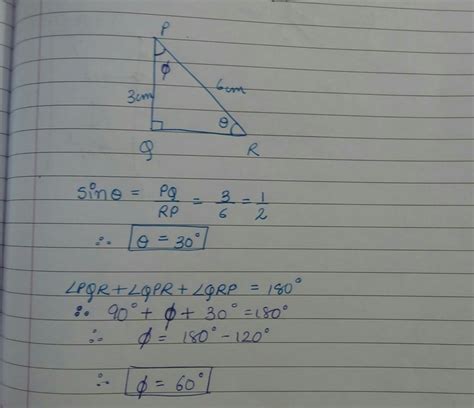 P
φ
3cm
6cm
θ
Q
R
sinθ = PQ/RP = 3/6 = 1/2
∴ θ = 30°
∠PQR + ∠QPR + ∠QRP = 180°
∴ 90° + φ + 30° = 180°
∴ φ = 180° - 120°
∴ φ = 60°